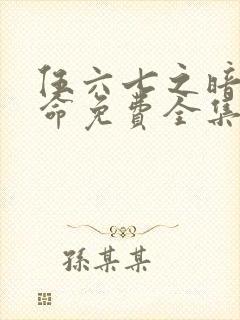 伍六七之暗
命免费全集
孫某某